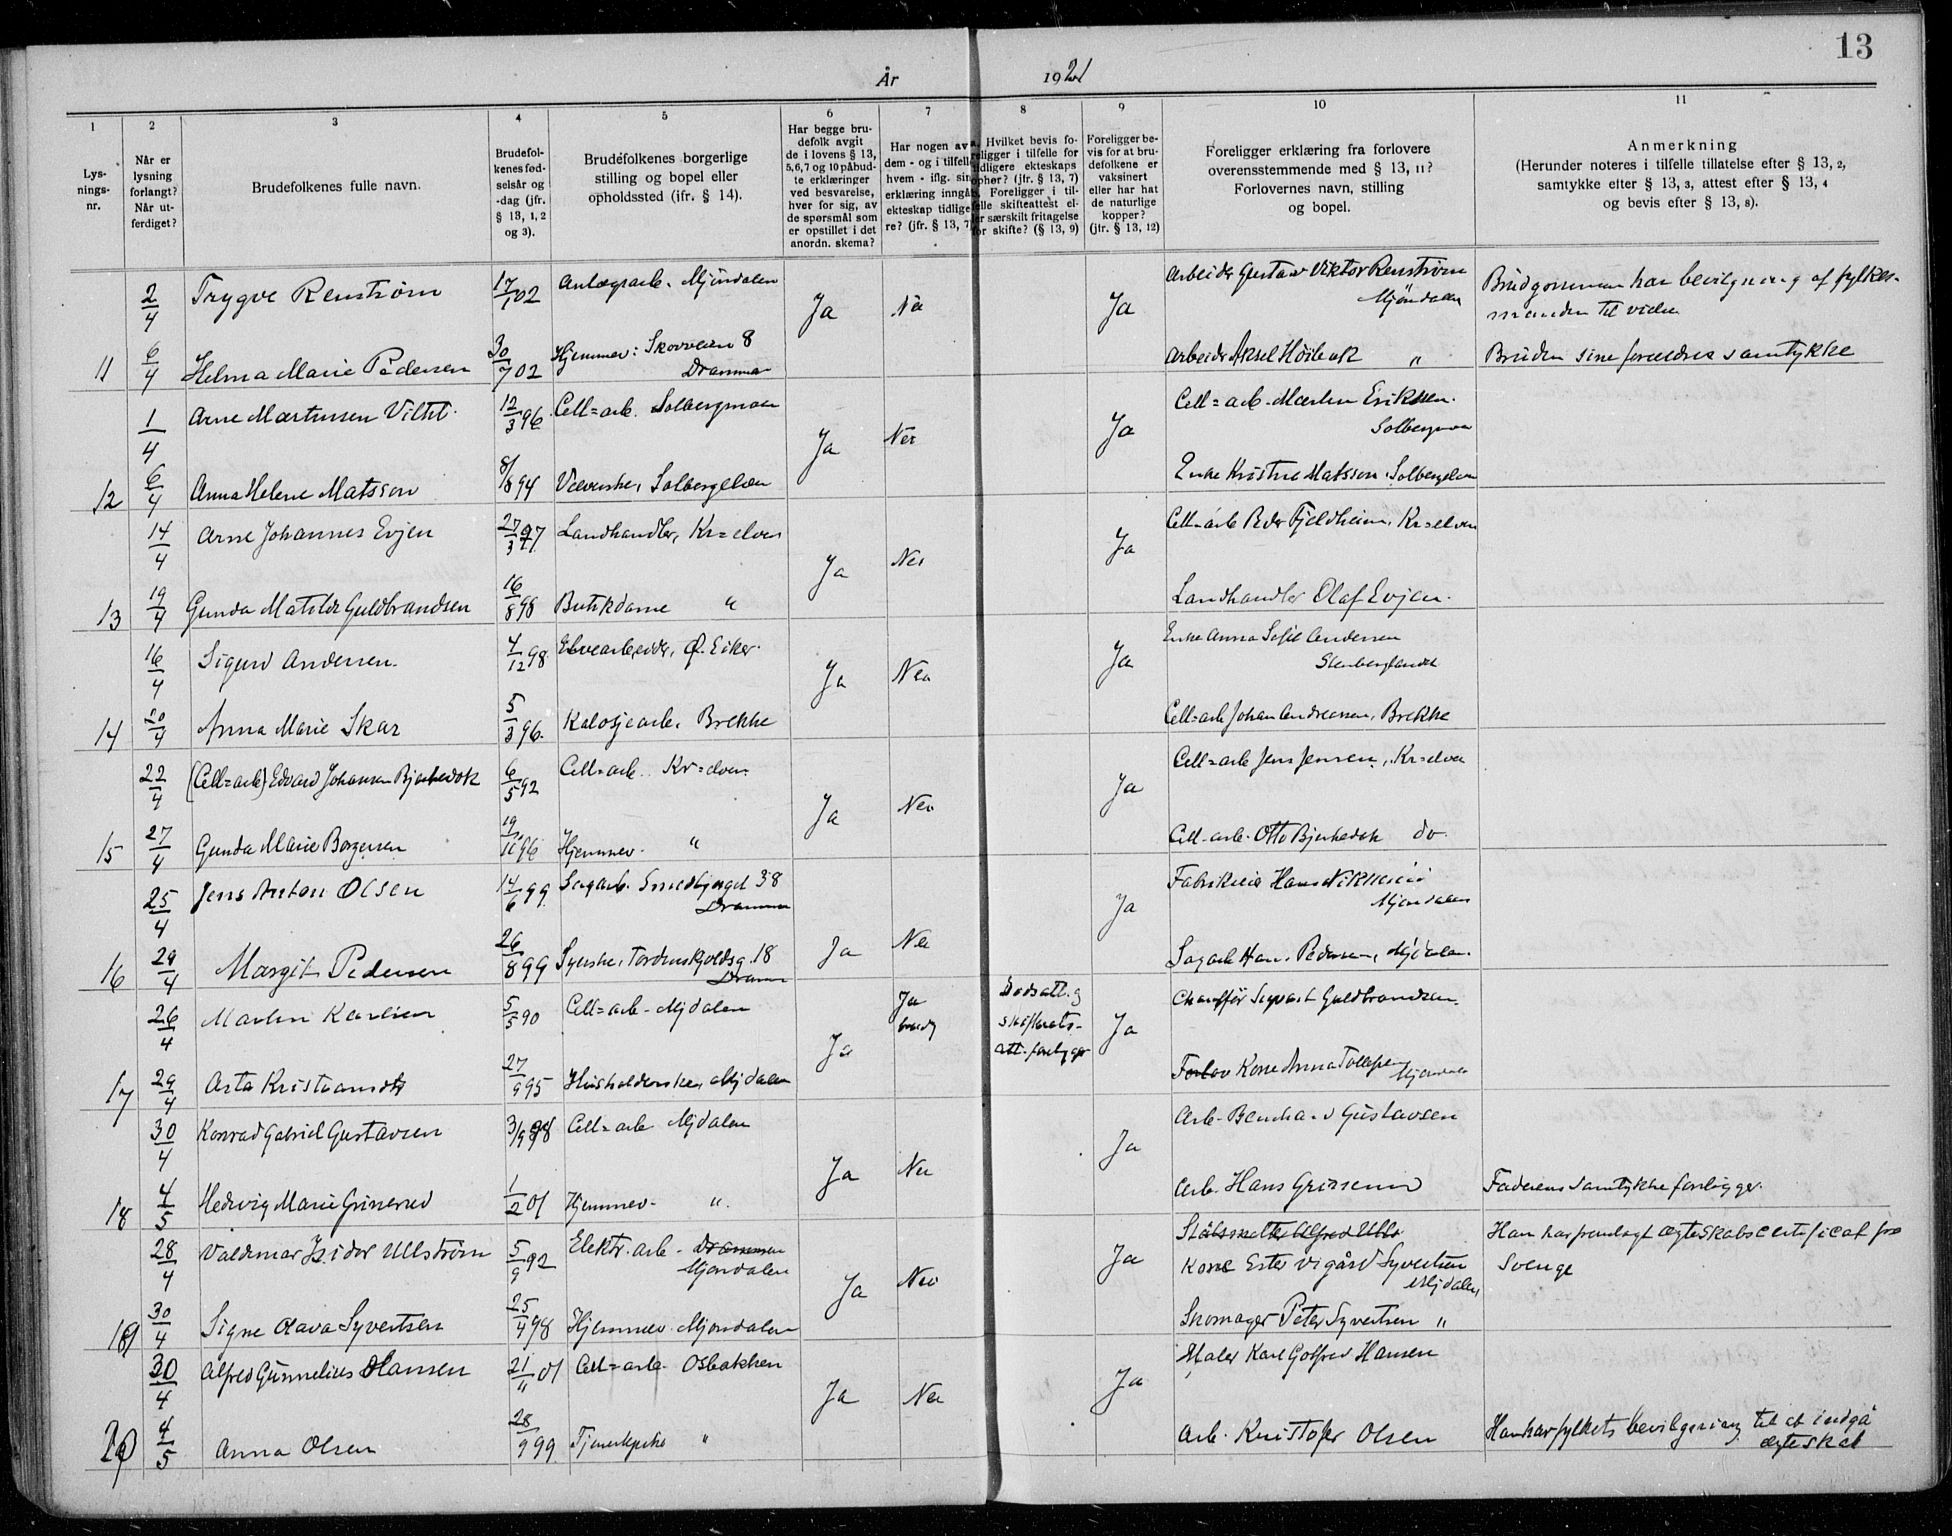 13
År 1921
1 2 3 4 5 6 7 8 9 10 11
Lys-
nings-
nr.
Når er
lysning
forlangt?
Når ut-
ferdiget?
Brudefolkenes fulle navn.
Brudefol-
kenes fød-
selsår og
-dag (jfr.
§ 13, 1, 2
og 3).
Brudefolkenes borgerlige
stilling og bopel eller
opholdssted (ifr. § 14).
Har begge bru-
defolk avgit
de i lovens § 13,
5,6,7 og 10 påbud-
te erklæringer
ved besvarelse,
hver for sig, av
de spørsmål som
er opstillet i det
anordn. skema?
Har nogen av
dem - og i tilfelle
hvem - iflg. sin
erklæring inngått
ekteskap tidlige-
re? (jfr. § 13, 7)
Hvilket bevis fo-
religger i tilfelle for
tidligere ekteskaps
ophør? (jfr. § 13, 7)
Foreligger i til-
felle skifteattest el-
ler særskilt fritagelse
for skifte? (§ 13, 9)
Foreligger be-
vis for at bru-
defolkene er
vaksinert
eller har hat
de naturlige
kopper?
(jfr. § 13, 12)
Foreligger erklæring fra forlovere
overensstemmende med § 13, 11?
Forlovernes navn, stilling
og bopel.
Anmerkning
(Herunder noteres i tilfelle tillatelse efter § 13, 2,
samtykke efter § 13, 3, attest efter § 13, 4
og bevis efter § 13, 8).
2/4 Trygve Renstrøm 17/1 02 Anlægsarb. Mjöndalen Ja Nei Ja Arbeider Gustav Viktor Renstrøm
Mjöndalen
Brudgommen har bevilgning af fylkes-
manden til vielse
11 6/4 Helma Marie Pedersen 30/7 02 Hjemmev: Skovveien 8
Drammen
Arbeider Aksel Höibak " Bruden sine forældres samtykke
1/4 Arne Martinsen Vilht. 12/3 96 Cell=arb. Solbergmoen Ja Nei Ja Cell=arb. Martin Eriksen.
Solbergmoen
12 6/4 Anna Helene Matsson 8/8 94 Væverske, Solbergelven Enke Kristine Matsson. Solbergelven
14/4 Arne Johannes Evjen 27/3 97 Landhandler, Kr=elven Ja Nei Ja Cell=arb Peder Fjeldheim, Kr=elven
13 19/4 Gunda Matilde Guldbrandsen 16/8 98 Butikdame " Landhandler Olaf Evjen.
16/4 Sigurd Andersen. 4/12 98 Elvearbeider, Ø. Eiker. Ja Nei Ja Enke Anna Sofie Andersen
14 20/4 Anna Marie Skar 5/3 96. Kalosjearb. Brekke Cell=arb Johan Andreassen, Brekke
22/4 (Cell=arb) Edvard Johansen Bjerkedok 6/5 92 Cell=arb. Kr=elven. Ja Nei Ja Cell=arb Jens Jensen, Kr=elven
15 27/4 Gunda Marie Borgersen 96 Hjemmev. " Cell-arb. Otto Bjerkedok do.
25/4 Jens Anton Olsen 14/6 99 Sagarb. Smedbjerget 38
Drammen
Ja Nei Ja Fabrikeier Hans
Mjøndalen
16 29/4 Margit Pedersen 26/8 99 Syerske, Tordenskjoldsg. 18
Drammen
Sagarb Hans Pedersen, Mjdalen
26/4 Martin Karlsen 5/5 90 Cell=arb - Mjdalen Ja Ja Dødsatt. og
att. foreligger
Ja Chauffør Sigvart Guldbrandsen.
17 29/4 Asta Kristiansdtr 27/9 95 Husholderske, Mjdalen Forlov Kone Anna Tollefsen
Mjøndalen
30/4 Konrad Gabriel Gustavsen 3/9 98 Cell=arb Mjdalen Ja Nei Ja Arb. Bernhard Gustavsen
18 4/5 Hedvig Marie Grinerud 1/2 01 Hjemmev. " Arb. Hans Grinerud Faderens samtykke foreligger.
28/4 Valdemar Isidor Ullstrøm 5/9 92 Elektr. arb - Drammen
Mjøndalen
Ja Nei Ja
Kone Ester Vigård Syvertsen
Mjdalen
Han har fremlagt ægteskabscertificat fra
Sverige
19 30/4 Signe Olava Syvertsen 25/4 98 Hjemmev. Mjøndalen Skomager Peter Syvertsen "
30/4 Alfred Gunnelius Hansen 21/11 01 Cell=arb. Osbakken Ja Nei Ja Maler Karl Gotfred Hansen
20 4/5 Anna Olsen 28/9 99 Tjenestepike " Arb. Kristofer Olsen Han har fylkets bevilgning til at indgå
ægteskab